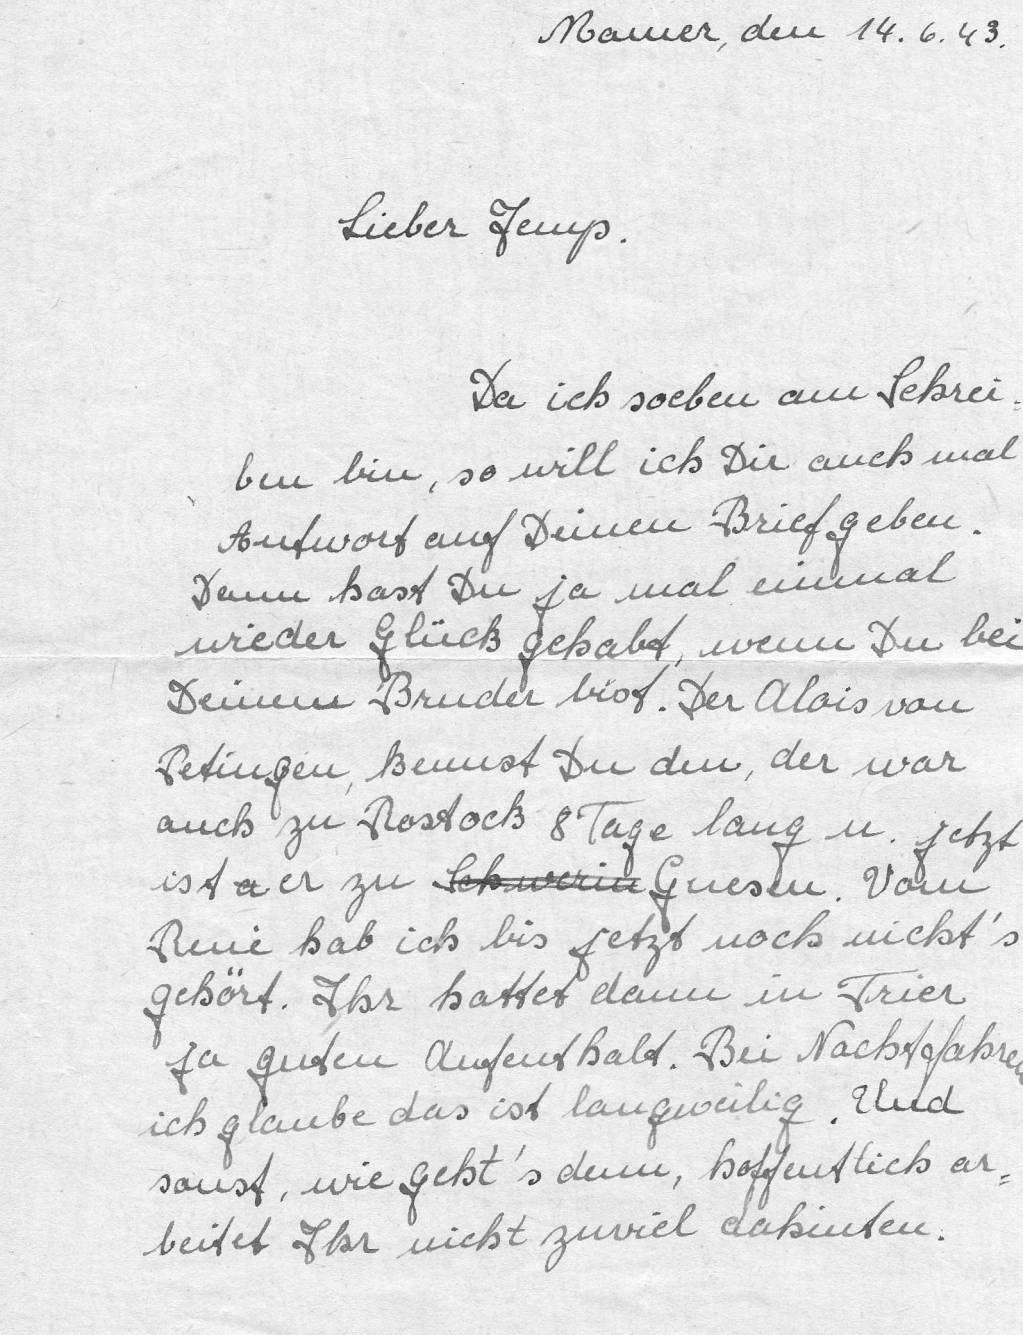 Mamer, den 14. 6. 43.
Lieber Jemp.
Da ich soeben am Schrei=
ben bin, so will ich Dir auch mal
Antwort auf Deinen Brief geben.
Dann hast Du ja mal einmal
wieder Glück gehabt, wenn Du bei
Deinem Bruder bist. Der Alois von
Petingen, kennst Du den, der war
auch zu Rostock 8 Tage lang u. jetzt
ist er zu Schwerin Gnesen. Vom
René hab ich bis jetzt noch nicht's
gehört. Ihr hattet dann in Trier
ja guten Aufenthalt. Bei Nachtfahren
ich glaube das ist langweilig. Und
sonst, wie geht's denn, hoffentlich ar=
beitet Ihr nicht zuviel dahinten.